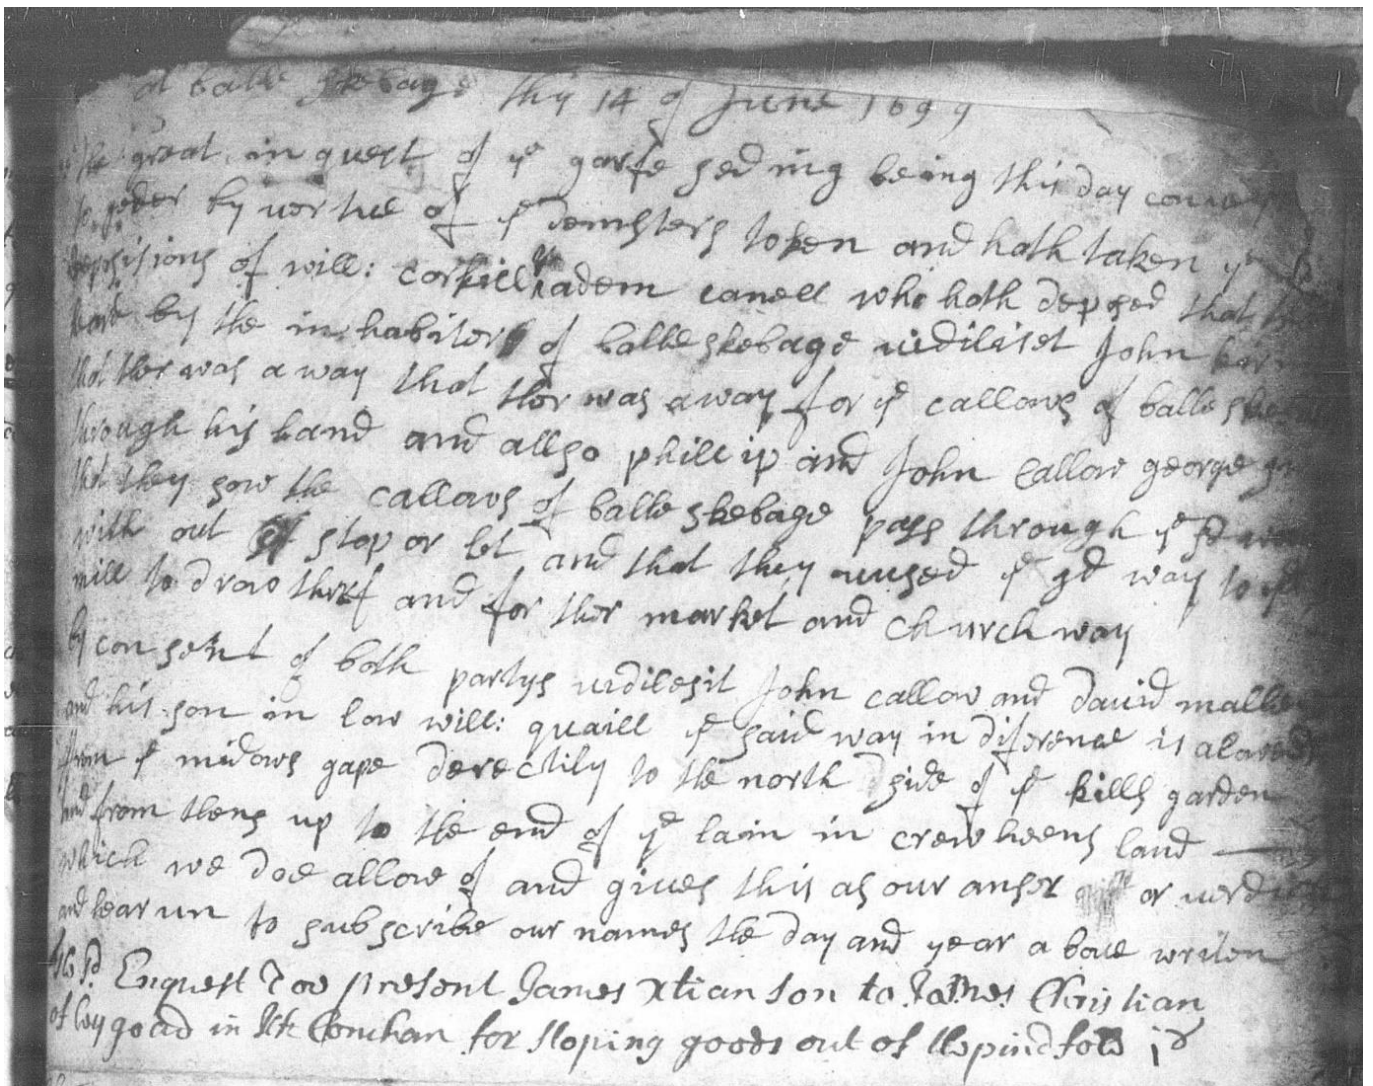 at balle skebage this 14 of June 1699
the great in quest of ye garfe seding being this day
to geder by vertue of ye demsters token and hath taken ye
depositions of will: corkill & adem canell who hath deposed that
by the in habitors of balle skebage vidiliset John
that ther was a way that ther was a way for ye callows of balle
through his hand and allso phillip and John Callow george
that they sow the callows of balle skebage pass through ye sd
with out stop or let and that they uused ye sd way to ye
mill to draw and for ther market and church way
by con sent of both partys vidilesit John callow and david
and his son in low will: quaill ye said way in diference is alowed
from ye midows gape derectily to the north side of ye kills garden
and from thens up to the end of ye lain in crewheens land
which we doe allow of and gives this as our anser or
and hear un to subscribe our names the day and year a bove writen
sd. Enquest doe present James Xtian son to James Christian
of in Kk Conchan for stoping goods out of pindfold